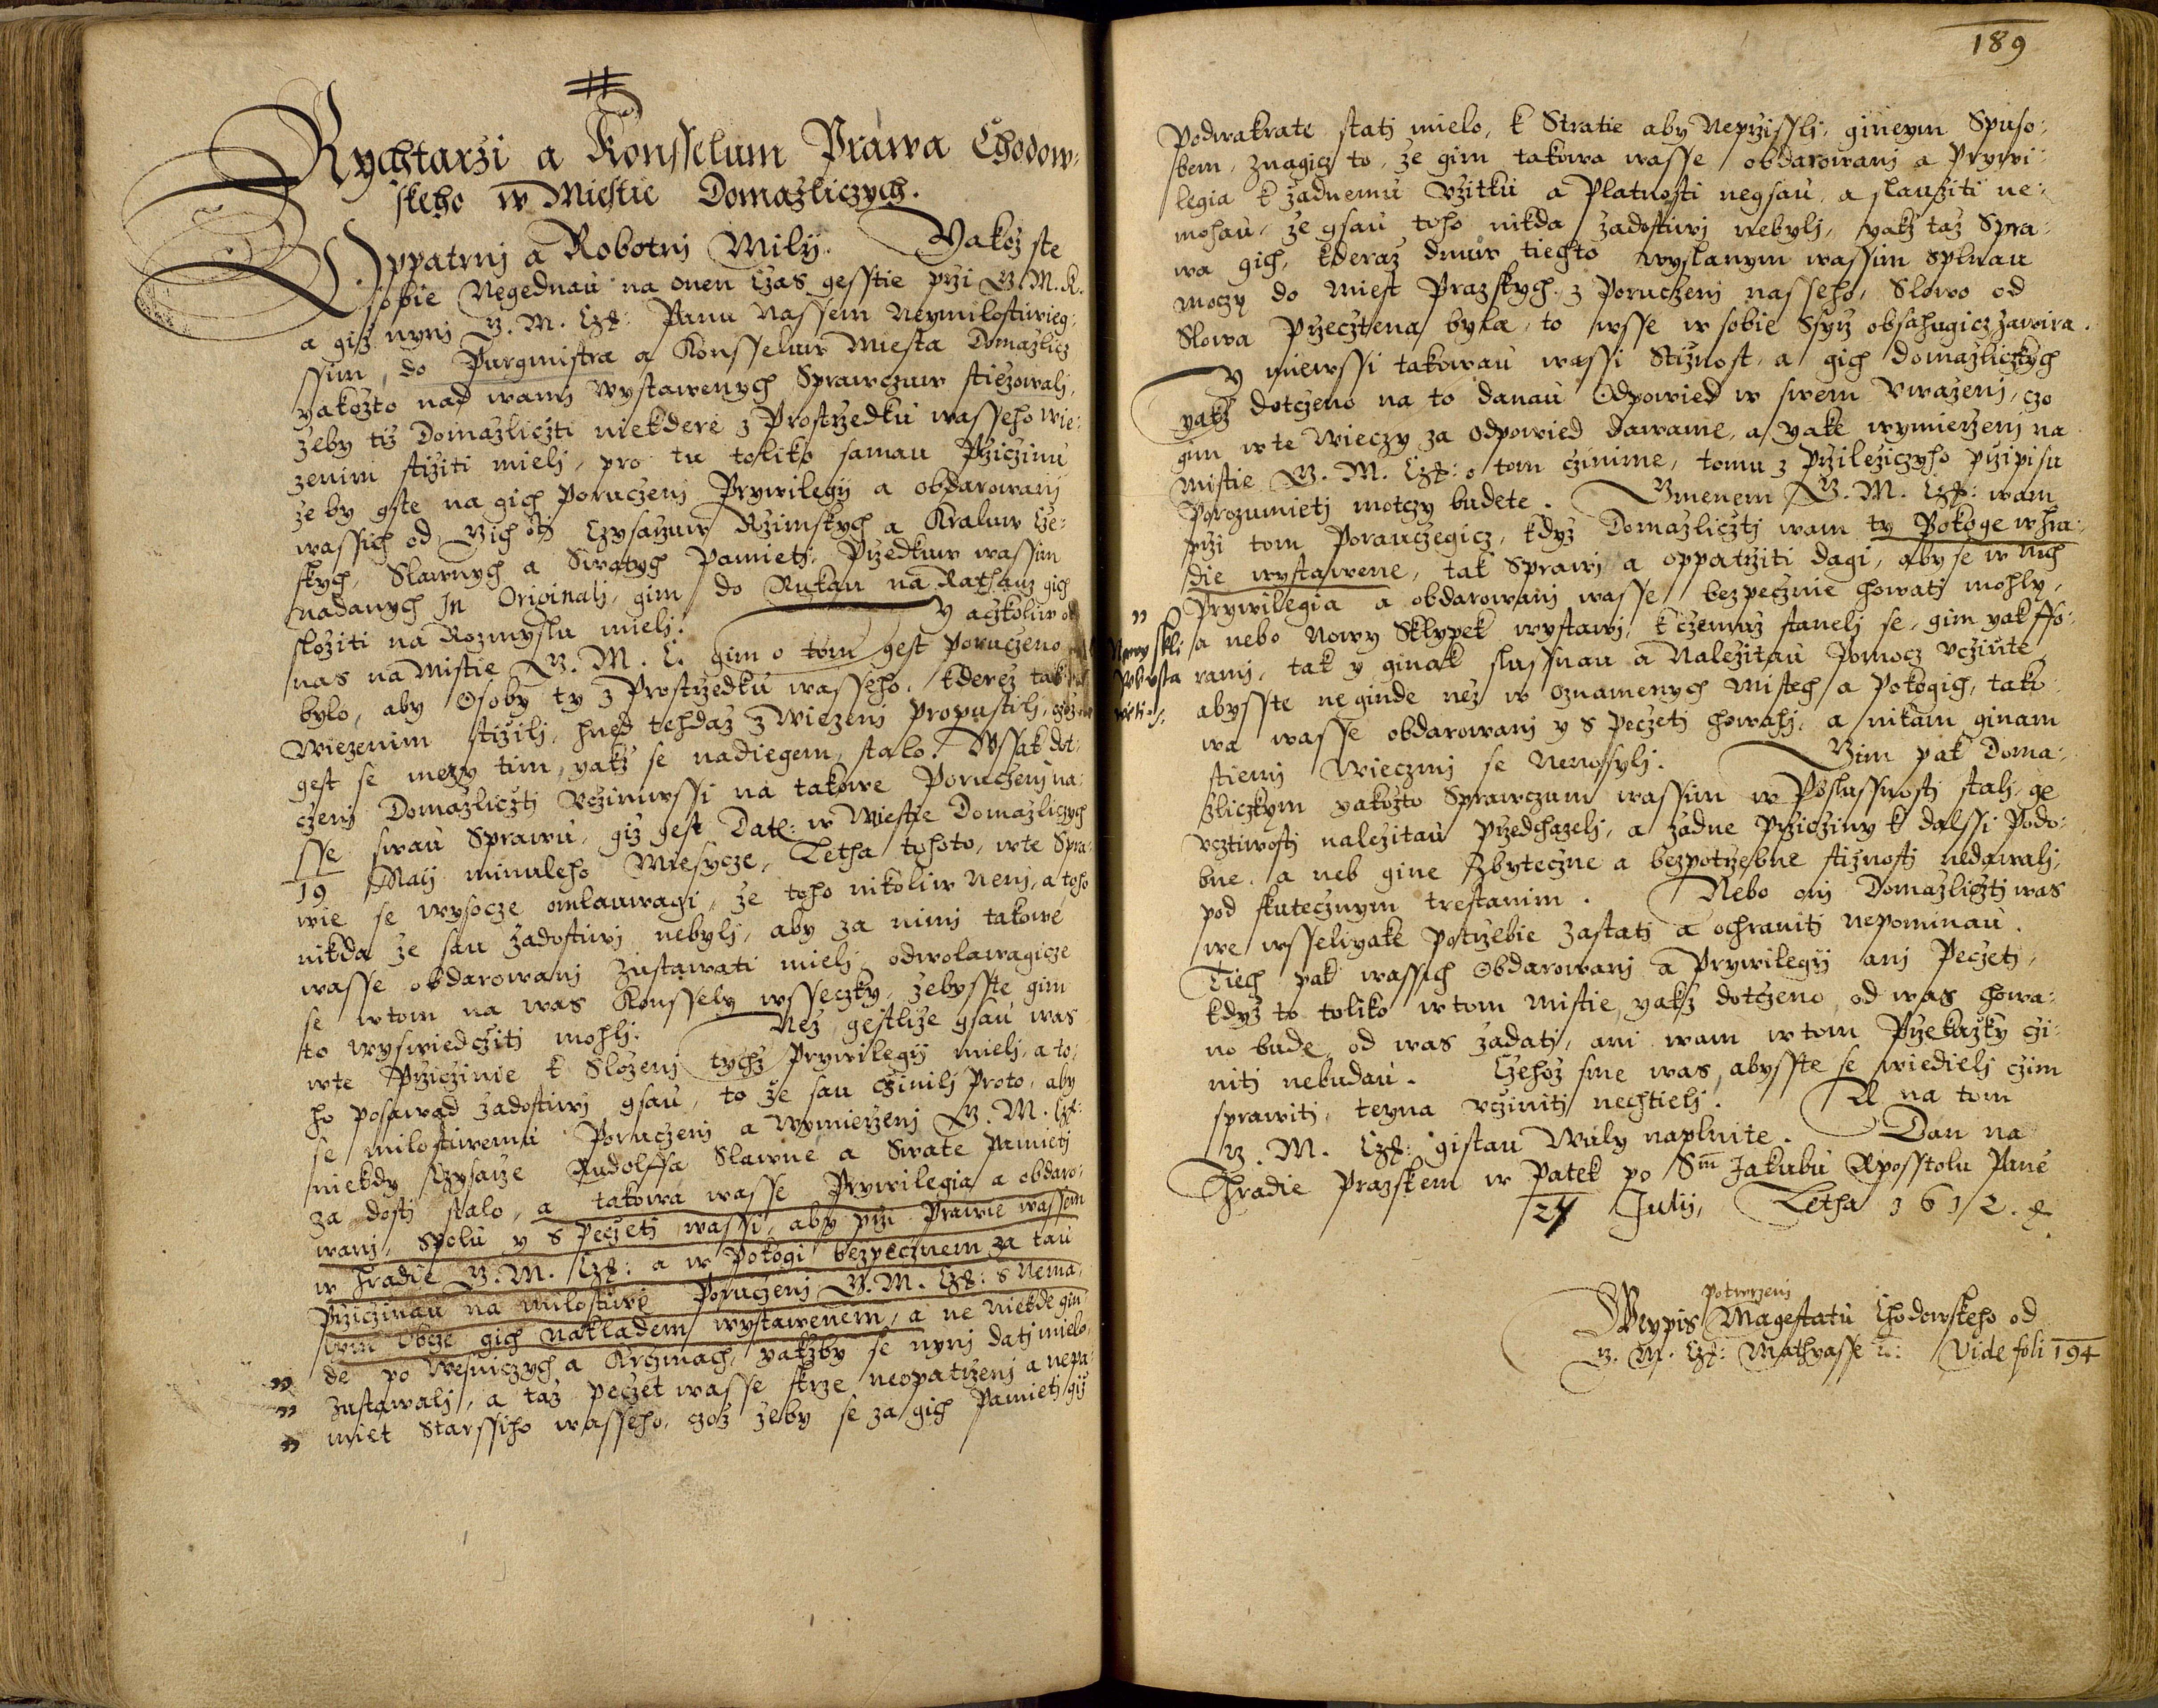 Rychtarzi a Konsselum Prawa Chodow:
skeho w Miestie Domazliczych.
Oppatrnj a Robotnj Milij. Yakoz ste
sobie Negednau na onen Czas gesstie przi G. M. K.
a giz nynj G. M. Czß: Panu Nassem Neymilostiwieg:
ssim, do Purgmistra a Konsseluw Miesta Domazlicz
yakozto nad wami wystawenych Sprawczuw stiezowalj,
zeby tiz Domazliczti niekdere z Prostrzedku wasseho wie:
zenim stiziti mielj, pro tu toliko samau Prziczinu
ze by gste na gich Poruczenj Prywilegij a obdarowanj
wassich od Czysarzuw Rzimskych a Kraluw Cze:
skych, Slawnych a Swatych Pamietj, Przedkuw wassim
nadanych In Originalj, gim do Rukau na Rathauz gich
sloziti na Rozmyslu mielj. Y aczkoliw od
nas na Mistie G. M. C. gim o tom gest Poruczeno
bylo, aby Osoby ty z Prostrzedku wasseho, kderez tak
Wiezenim stizilj, hned tehdaz z Wiezenj propustilj, czoz
gest se mezy tim, yakz se nadiegem, stalo. Wssak dot:
czenj Domazliczti vcziniwssi na takowe Poruczenj na:
sse swau Sprawu, giz gest Dat: w Miestie Domazliczych
19 Maij minuleho Miesycze, Letha tohoto, wte Spra:
wie se wysocze omlauwagi, ze toho nikoliw nenj, a toho
nikda ze sau zadostiwj nebylj, aby za nimj takowe
wasse obdarowanj zustawati mielj odwolawagicze
se wtom na was Konssely wsseczky, zebysste gim
to wyswiedcziti mohlj. Nez gestlize gsau was
wte Przicziniie k Slozenj tychz Prywilegij mielj, a to:
ho posawad zadostiwj gsau, to ze sau czinilj Proto, aby
se milostiwemu Poruczenj a Wymierzenj G. M. Czß:
niekdy Czysarze Rudolffa Slawne a Swate Pamietj
za dosti stalo, a takowa wasse Prywilegia a obdaro:
wanj, spolu y s Peczetj wassi, aby przi Prawie wassem
w Hradie G. M. Czß: a w Pokogi bezpecznem za tau
Przicziniau na milostiwe Poruczenj G. M. Czß: s Nema:
lym Obcze gich nakladem wystawenem, a ne niekde gin
de po Wesniczych a Krczmach, yakzby se nynj datj mielo,
zustawalj, a taz peczet wasse skrze neopatrzenj a nepa:
miet Starssiho wasseho, czoz zeby se za gich Pamietj giz
189
Podwakrate statj mielo, k Stratie aby Neprzisslj, gineym Spuso:
bem, znagicz to, ze gim takowa wasse obdarowanj a Prywi:
legia k zadnemu vzitku a Platnosti negsau, a slauziti ne:
mohau, ze gsau toho nikda zadostiwj nebylj, yakz taz Spra:
wa gich, kderaz dnuw tiechto wyslanym wassim splnau
moczy do Miest Prazskych z Poruczenj nasseho, Slowo od
Slowa Przecztena byla, to wsse w sobie Ssyrz obsahugicz zawira.
Y miewssi takowau wassi Stiznost, a gich Domazliczkych
yakz dotczeno na to danau Odpowied w swem Vwazenj, czo
gim wte Wieczy za odpowied dawame, a yake wymierzenj na
mistie G. M. Czß: o tom czinime, tomu z Przileziczyho przipisu
Porozumietj moczy budete. Gmenem G. M. Czß: wam
przi tom Porauczegicz, kdyz Domazliczti wam ty Pokoge w hra:
die wystawene, tak Sprawj a oppatrziti dagi, aby se w nich
Prywilegia a obdarowanj wasse bezpecznie chowatj mohly,
a nebo Nowy Sklypek wystawj, k czemuz stanelj se, gim yak ffo:
ramj, tak y ginak slussnau a Nalezitau Pomocz vczinite
abysste neginde nez w oznamenych mistech a Pokogich, tako
wa wasse obdarowanj y s peczetj chowalj, a nikam ginam
stiemj Wieczmj se Nenossylj. Gim pak Doma:
zliczkym yakozto Sprawczum wassim w Poslussnosti stalj, ge
vcztiwosti nalezitau Przedchazelj, a zadne Przicziny k dalssi Podo:
bne, a neb gine Zbyteczne a bezpotrzebne stiznosti nedawalj,
pod skutecznym trestanim. Nebo onj Domazliczti was
we wsselijake potrzebie zastati a ochraniti nepominau.
Tiech pak wassich Obdarowanj a Prywilegij anj Peczetj,
kdyz to toliko w tom Mistie, yakz dotczeno, od was chowa:
no bude, od was zadatj, ani wam w tom Przekazky czi:
niti nebudau. Czehoz sme was, abysste se wiedielj czim
sprawiti, teyna vcziniti nechtielj. A na tom
G. M. Czß: gistau Wuly naplnite. Dan na
Hradie Prazskem w Patek po Sm Jakubu Aposstolu Panie
27 Julij, Letha 1612.
Nowy skli
wysta
witi.
Potwrzenj
Weypis Magestatu Chodowskeho od
G. M. Czß: Mathyasse Vide foli 194